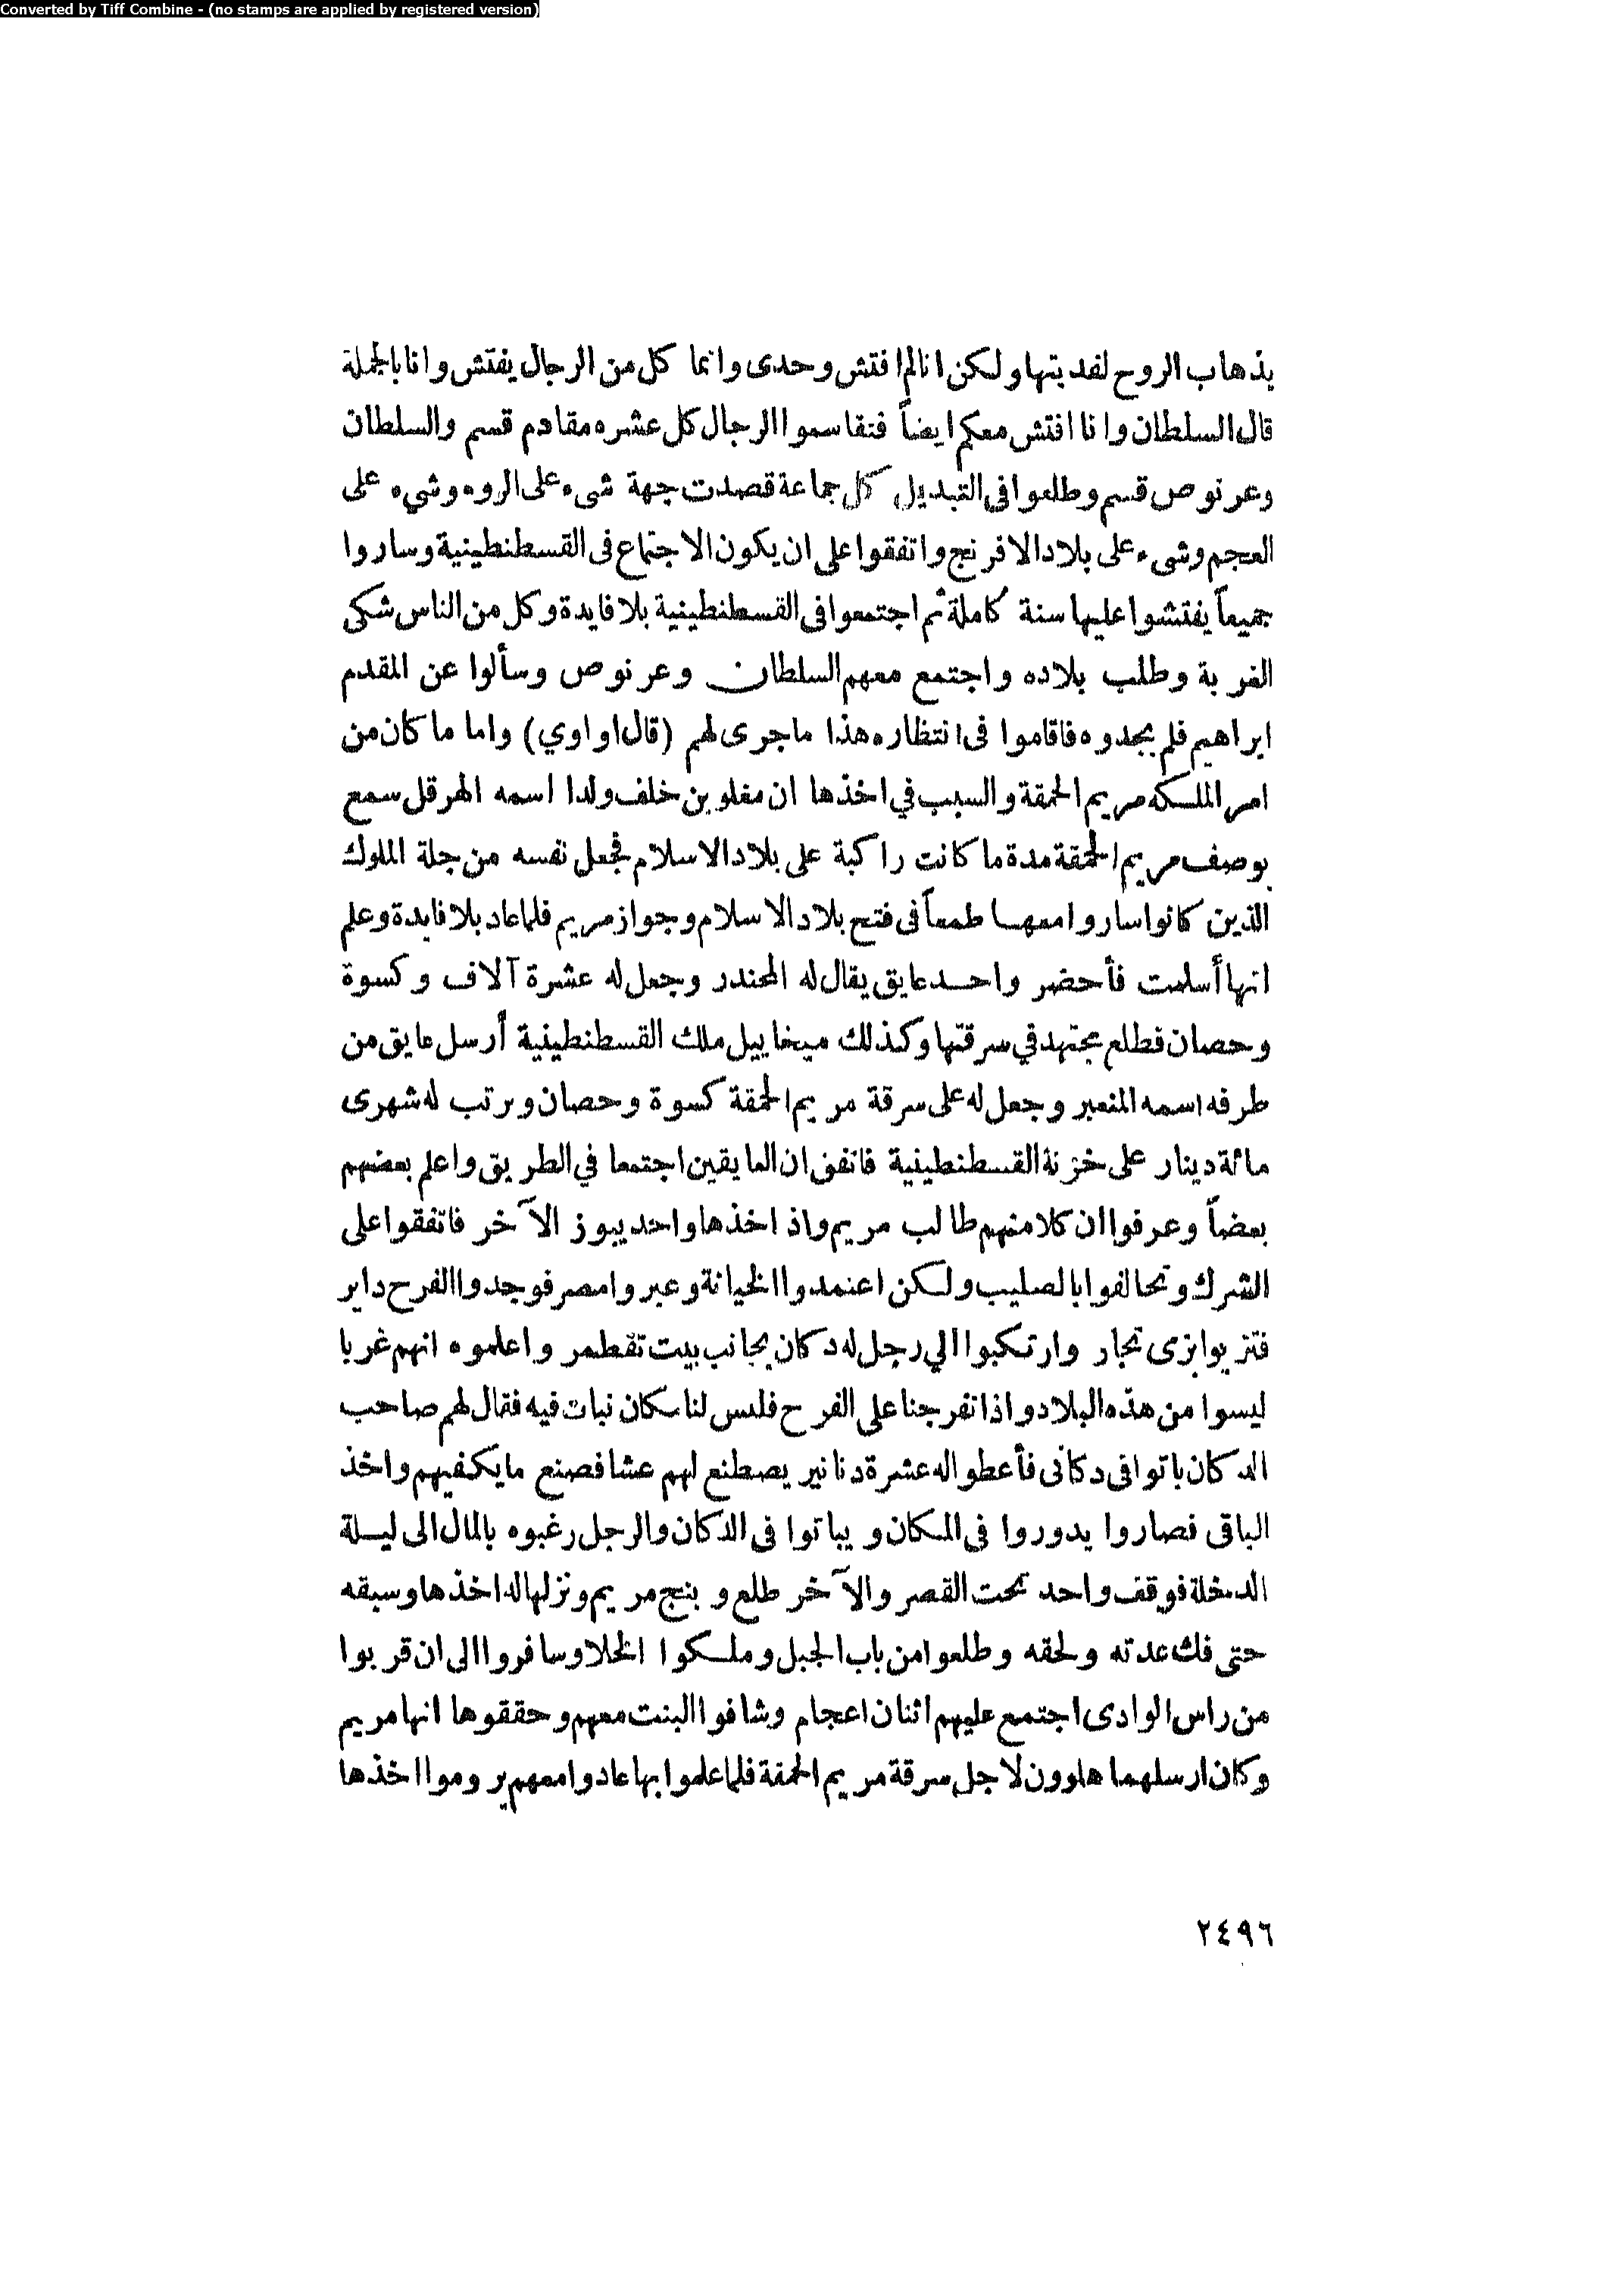 Converted by Tiff Combine - (no stamps are applied by registered version)
يذهاب الروح لفديتها ولكن انا لم افتش وحدى وانما كل من الرجال يفتش وانا بالجملة
قال السلطان وانا افتش معكم ايضاً فتقاسموا الرجال كل عشره مقادم قسم والسلطان
وعرنوص قسم وطلعوا فى التبديل كل جماعة قصدت جهة شىء على الروم وشيء على
العجم وشىء على بلاد الافرنج واتفقوا على ان يكون الاجتماع فى القسطنطينية وساروا
جميعاً يفتشوا عليها سنة كاملة ثم اجتمعوا فى القسطنطينية بلا فايدة وكل من الناس شكى
الغربة وطلب بلاده واجتمع معهم السلطان وعرنوص وسألوا عن المقدم
ابراهيم فلم يجدوه فاقاموا فى انتظاره هذا ماجرى لهم (قال اوي) واما ما كان من
امر الملكه مريم الحمقة والسبب في اخذها ان مغلوين خلف ولدا اسمه الهرقل سمع
بوصف مريم الحمقة مدة ما كانت راكبة على بلاد الاسلام فجعل نفسه من جلة الملوك
الذين كانوا ساروا معها طمعاً فى فتح بلاد الاسلام وجواز مريم فلما عاد بلا فايدة وعلم
انها أسلمت فأحضر واحد عايق يقال له المحندر وجعل له عشرة آلاف وكسوة
وحصان فطلع مجتهد في سرقتها وكذلك ميخاييل ملك القسطنطينية أرسل عايق من
طرفه اسمه المنعبر وجعل له على سرقة مريم الحمقة كسوة وحصان ويرتب له شهرى
مائة دينار على خزنة القسطنطينية فاتفق ان العايقين اجتمعا في الطريق واعلم بعضهم
بعضاً وعرفوا ان كلا منهم طالب مريم واذ اخذها واحد يبوز الآخر فاتفقوا على
الشرك وتحالفوا بالصليب ولكن اعتمدوا الخيانة وعبروا مصر فوجدوا الفرح داير
فتزيوا بزى تجار وارتكبوا الي رجل له دكان بجانب بيت تقطمر واعلموه انهم غربا
ليسوا من هذه البلاد واذا تفرجنا على الفرح فلس لنا مكان نبات فيه فقال لهم صاحب
الدكان باتوا فى دكانى فأعطوا له عشرة دنانير يصطنع لهم عشا فصنع ما يكفيهم واخذ
الباقى فصاروا يدوروا فى المكان ويباتوا فى الدكان والرجل رغبوه بالمال الى ليلة
الدخلة فوقف واحد تحت القصر والآخر طلع وبنج مريم ونزلها له اخذها وسبقه
حتى فك عدته ولحقه وطلعوا من باب الجبل وملكوا الخلا وسافروا الى ان قربوا
من راس الوادى اجتمع عليهم اثنان اعجام وشافوا البنت معهم وحققوها انها مريم
وكان ارسلهما هلوون لاجل سرقة مريم الحمقة فلما علموا بها عادوا معهم يروموا اخذها
٢٤٩٦